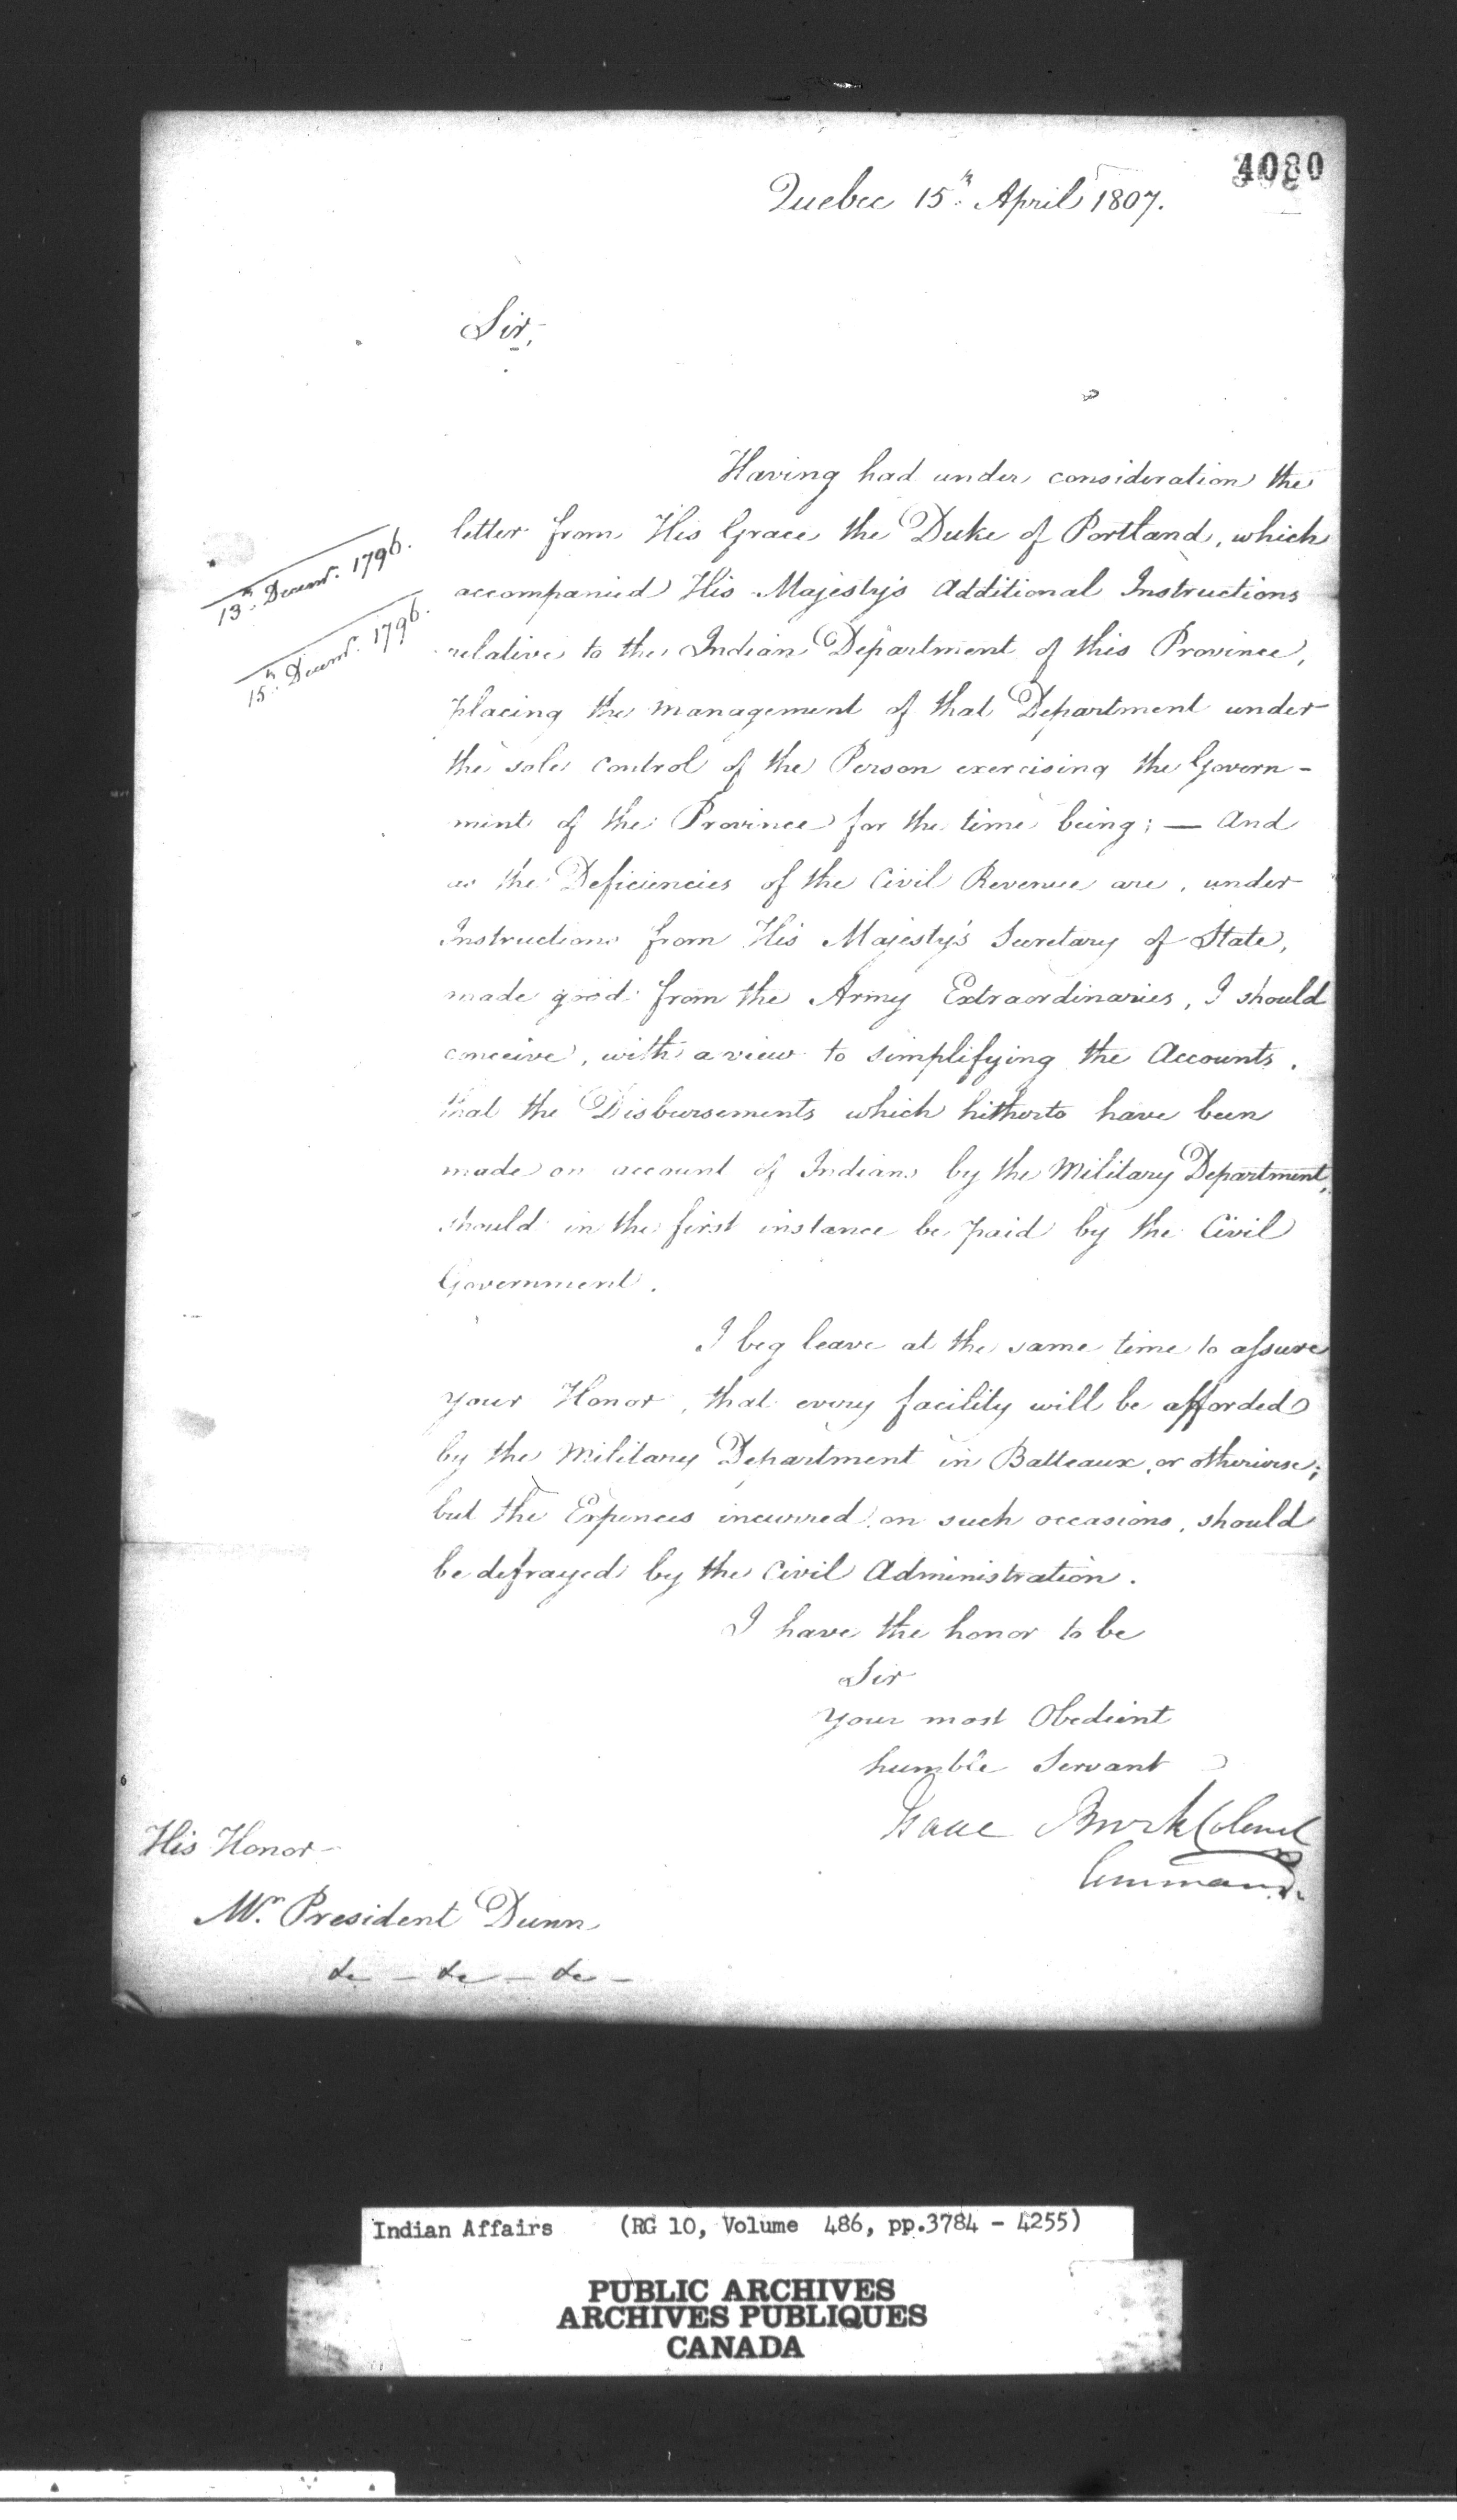 4080
Quebec 15th April 1807.
Sir,
Having had under consideration the
letter from His Grace the Duke of Portland, which
13th Decemr. 1796.
accompanied His Majesty's Additional Instructions
15th Decemr. 1796.
relative to the Indian Department of this Province,
placing the management of that Department under
the sole control of the Person exercising the Govern-
ment of the Province for the time being; — And
as the Deficiencies of the Civil Revenue are, under
Instructions from His Majesty's Secretary of State,
made good from the Army Extraordinaries, I should
conceive, with a view to simplifying the Accounts,
that the Disbursements which hitherto have been
made on account of Indians by the Military Department,
should in the first instance be paid by the Civil
Government.
I beg leave at the same time to assure
your Honor, that every facility will be afforded
by the Military Department in Batteaux, or otherwise;
but the Expences incurred on such occasions, should
be defrayed by the Civil Administration.
I have the honor to be
Sir
Your most Obedient
humble Servant
Isaac Brock Colonel
Command.
His Honor
Mr. President Dunn
&c — &c — &c —
Indian Affairs (RG 10, Volume 486, pp.3784 - 4255)
PUBLIC ARCHIVES
ARCHIVES PUBLIQUES
CANADA